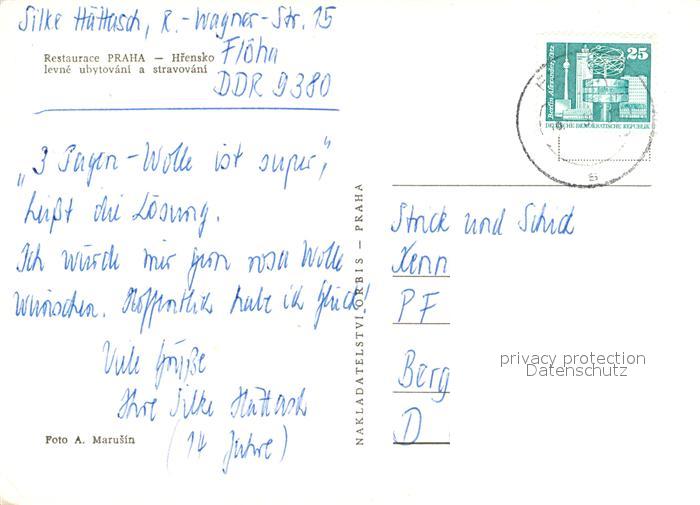 Silke Hüttasch, R.-Wagner-Str. 15
Flöha
DDR 9380
Restaurace PRAHA — Hřensko
levné ubytování a stravování
„3 Pagen-Wolle ist super",
heißt die Lösung.
Ich würde mir gern rosa Wolle
wünschen. Hoffentlich habe ich Glück!
Viele Grüße
Ihre Silke Hüttasch
(14 Jahre)
Foto A. Marušin
NAKLADATELSTVÍ ORBIS — PRAHA
25
Berlin, Alexanderplatz
DEUTSCHE DEMOKRATISCHE REPUBLIK
Strick und Schick
Kenn
PF
Berg
D
privacy protection
Datenschutz